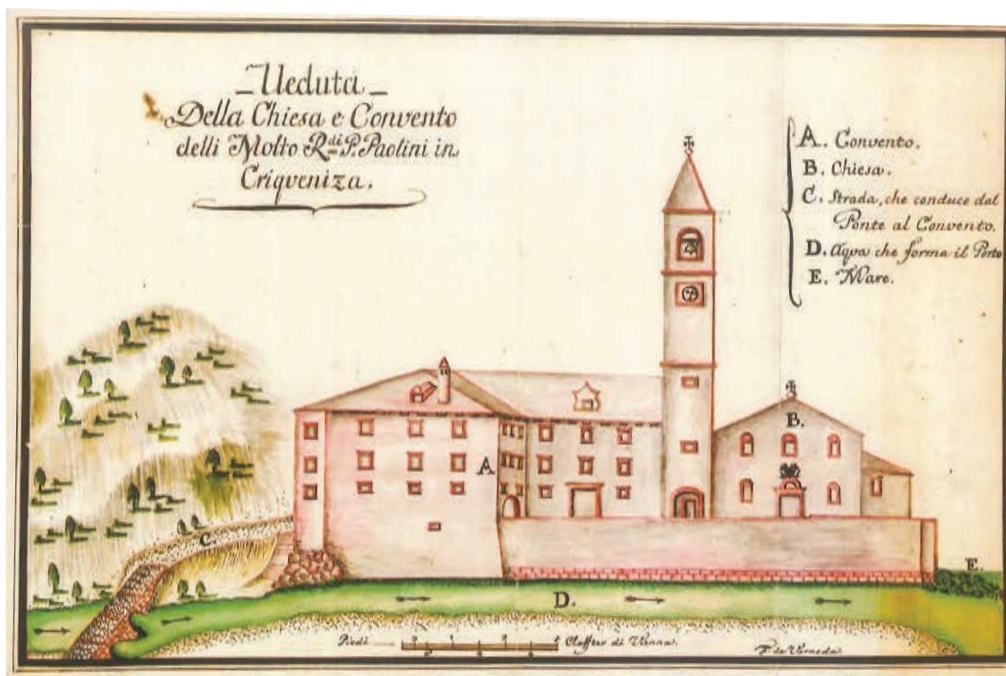 _Veduta_
Della Chiesa e Convento
delli Molto R.di P. Paolini in
Criqveniza.
A. Convento.
B. Chiesa.
C. Strada, che conduce dal
Ponte al Convento.
D. Aqva che forma il Porto
E. Mare.
B.
A
C
E.
D.
Piedi
Claffter di Vienna.